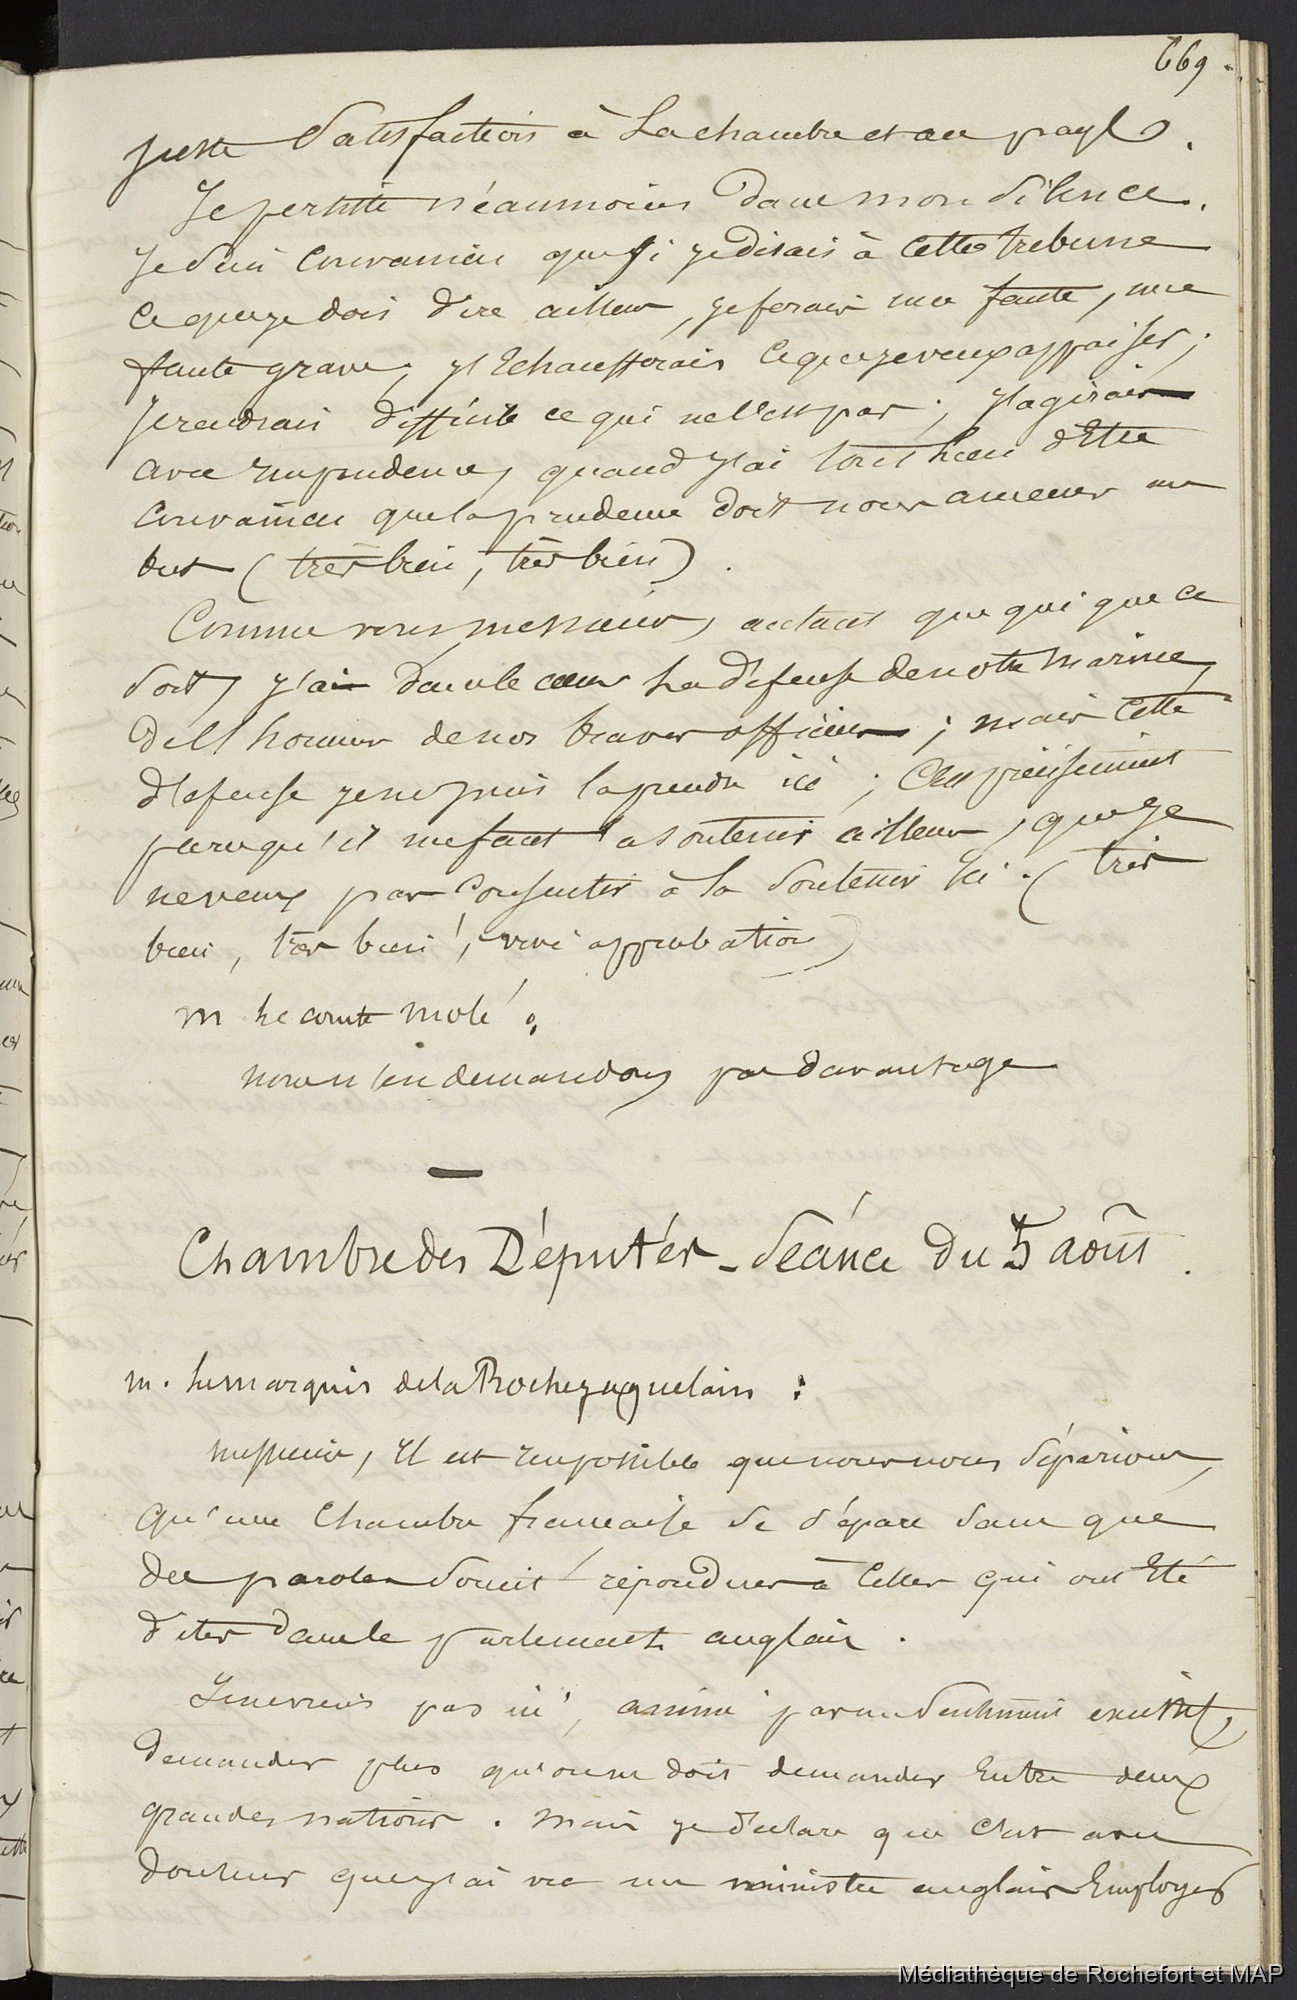 669
juste satisfaction à la chambre et au pays.
Je persiste néaunmoins dans mon silence.
Je suis convaincu que si je disais à cette tribune
ce que je dois dire ailleurs, je ferais une faute, une
faute grave, j'Echaufferais ce que je veux appaiser;
je rendrais difficile ce qui ne l'est pas; j'agirais
avec imprudence, quand j'ai tout lieu d'Etre
convaincu que la prudence doit nous amener au
but (très bien, très bien).
Comme vous, messieurs, autant que qui que ce
soit, j'ai dans le cœur la défense de notre marine,
de l'honneur de nos braves officiers; mais cette
défense je ne puis la prendre ici; c'est précisément
parcequ'il me faut la soutenir ailleurs, que je
ne veux pas consentir à la soutenir ici. (très
bien, très bien!, vive approbation)
M le comte Molé:
nous n'en demandons pas davantage
Chambre des Députés - Séance du 5 août.
M. le marquis de la Rochejaquelain:
messieurs, il est impossible que nous nous séparions,
qu'une Chambre francaise se sépare sans que
des paroles soient répondues à celles qui ont Eté
dites dans le parlement anglais.
Je ne viens pas ici, animé par un sentiment excessif,
demander plus qu'on ne doit demander Entre deux
grandes nations. Mais je déclare que c'est avec
douleur que j'ai vu un ministre anglais Employer
Médiathèque de Rochefort et MAP